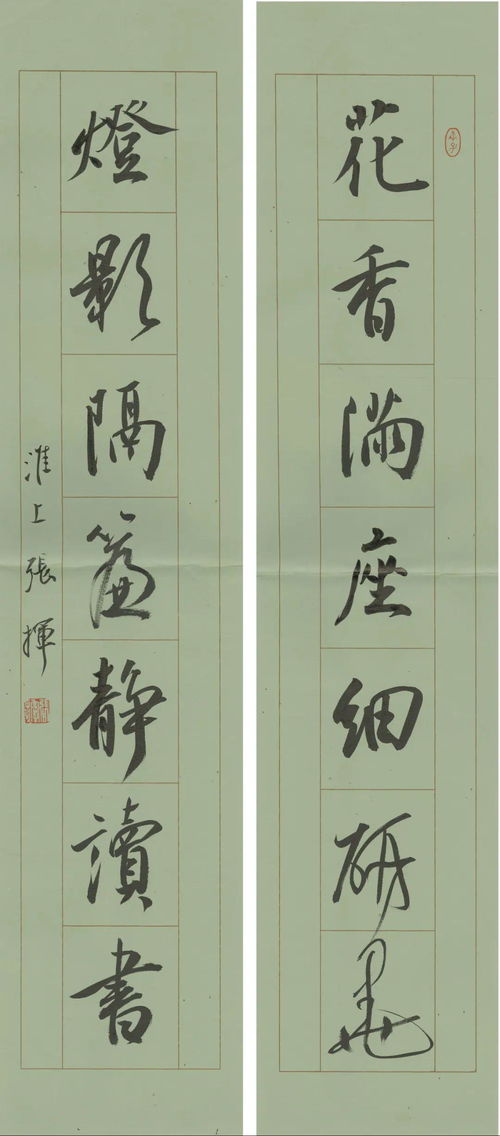 花香滿座細研墨
燈影隔簾静讀書
淮上張揮